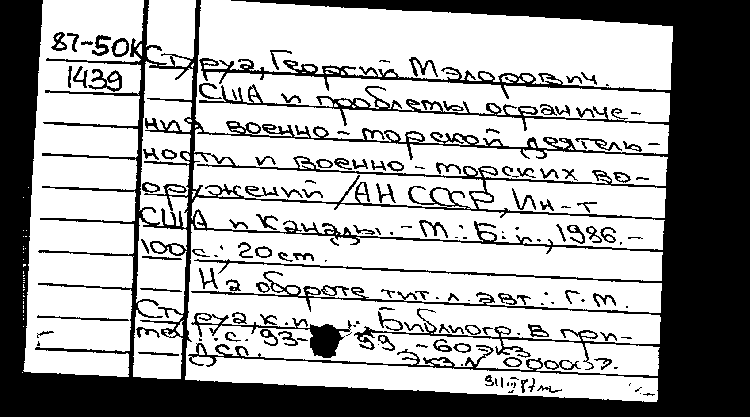 87-50К
1439
Стуруа, Георгий Мэлорович.
США и проблемы ограниче-
ния военно-морской деятель-
ности и военно-морских во-
оружений / АН СССР, Ин-т
США и Канады. - М.: Б. и., 1986. -
100 с.; 20 см.
На обороте тит. л. авт.: Г. М.
Стуруа, к.и.н. Библиогр. в при-
меч.: с. 93-99. - 60 экз.
ДСП. Экз. N 000007.